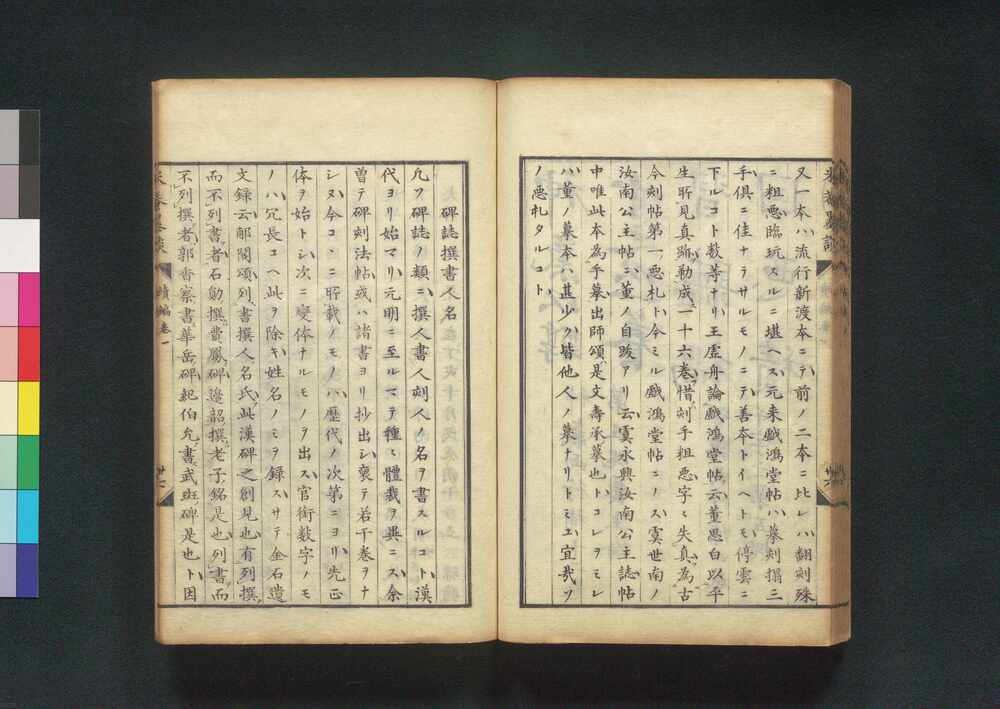 又一本ハ流行新渡本ニテ前ノ二本ニ比レハ翻刻殊
ニ粗悪臨玩スルニ堪ヘス元来戯鴻堂帖ハ摹刻搨三
手俱ニ佳ナラサルモノニテ善本トイヘトモ停雲ニ
下ルコト数等ナリ王虚舟論戯鴻堂帖云董思白以平
生所見真跡勒成一十六巻惜刻手粗悪字々失真為古
今刻帖第一悪札ト今ミル戯鴻堂帖ニノス虞世南ノ
汝南公主帖ニ董ノ自跋アリ云虞永興汝南公主誌帖
中唯此本為手摹出師頌是文壽承摹也トコレヲミレ
ハ董ノ摹本ハ甚少ク皆他人ノ摹ナリトミユ宜哉ソ
ノ悪札タルコト
碑誌撰書人名
凡ソ碑誌ノ類ニ撰人書人刻人ノ名ヲ書スルコト漢
代ヨリ始マリ元明ニ至ルマテ種々體裁ヲ異ニス余
曽テ碑刻法帖或ハ諸書ヨリ抄出シ裒テ若干巻ヲナ
シヌ今コヽニ所載ノモノハ歴代ノ次第ニヨリ先正
体ヲ始トシ次ニ変体ナルモノヲ出ス官銜数字ノモ
ノハ冗長ユヘ此ヲ除キ姓名ノミヲ録スサテ金石遺
文録云郙閣頌列書撰人名氏此漢碑之創見也有列撰
而不列書者石勛撰費鳳碑邉韶撰老子銘是也列書而
不列撰者郭香察書華岳碑紀伯允書武班碑是也ト因
續編巻一